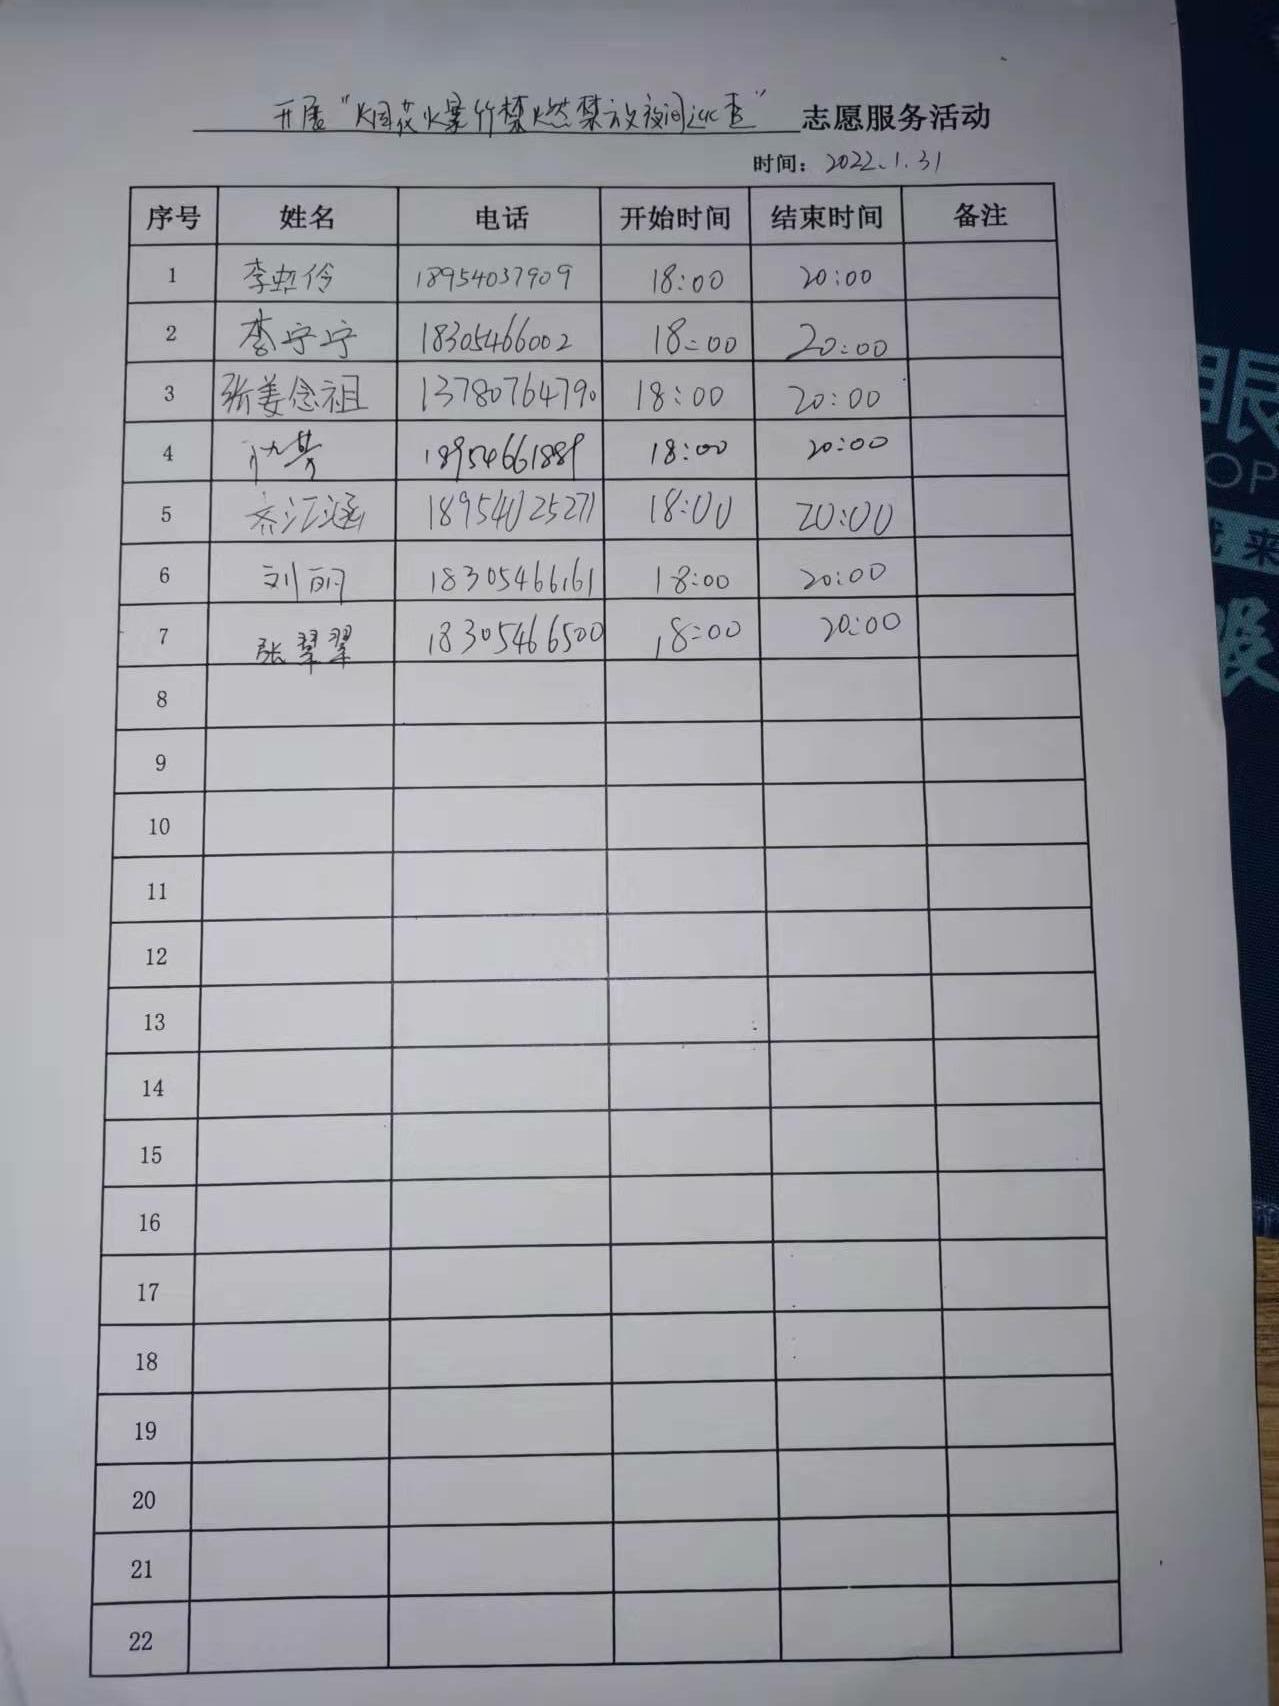 开展“烟花火暴竹禁燃禁放夜间巡查” 志愿服务活动
时间：2022.1.31
序号 姓名 电话 开始时间 结束时间 备注
1 李虹伶 18954037909 18:00 20:00
2 李宁宁 18305466002 18:00 20:00
3 张姜念祖 13780764790 18:00 20:00
4 18954661889 18:00 20:00
5 齐汇涵 18954025271 18:00 20:00
6 刘丽 18305466161 18:00 20:00
7 张翠翠 18305466500 18:00 20:00
8
9
10
11
12
13
14
15
16
17
18
19
20
21
22
眼
OP
就来
服